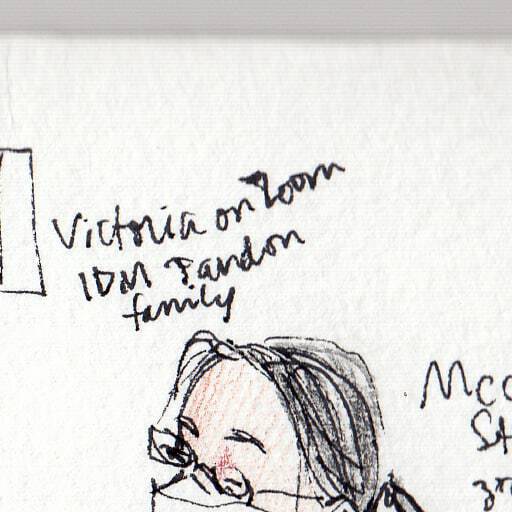 Victoria on Zoom
IDM Tandon
family
Mcc
St
3r